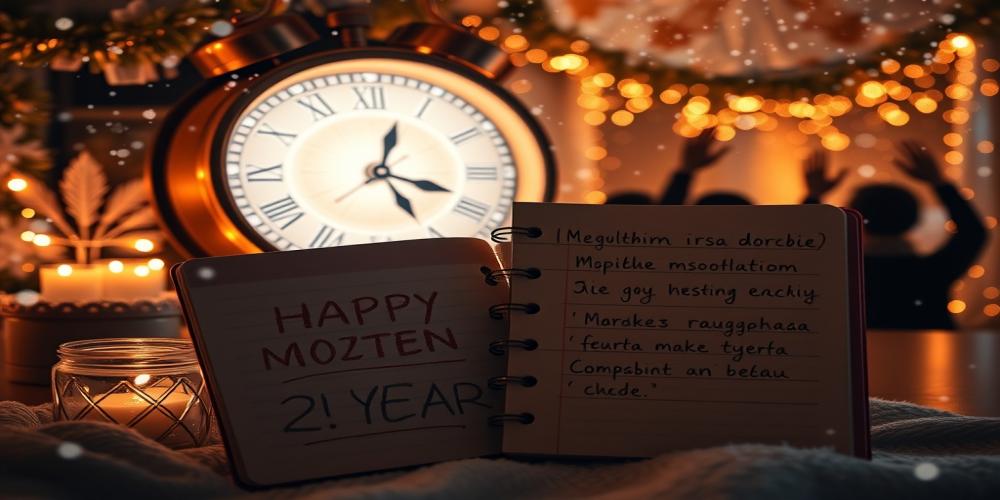 XII
I
II
III
IIII
X
XI
HAPPY
MOZTEN
2! YEAR
(Megulthim irsa dorcbie)
Mopithe msooflatiom
Jie goy hesting enckiy
'Mardkes rauggphasa
'feurta make tyerfa
Compsbint an betau
'chcde."